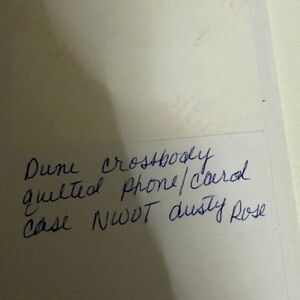 Dune crossbody
quilted phone/card
case NWOT dusty Rose